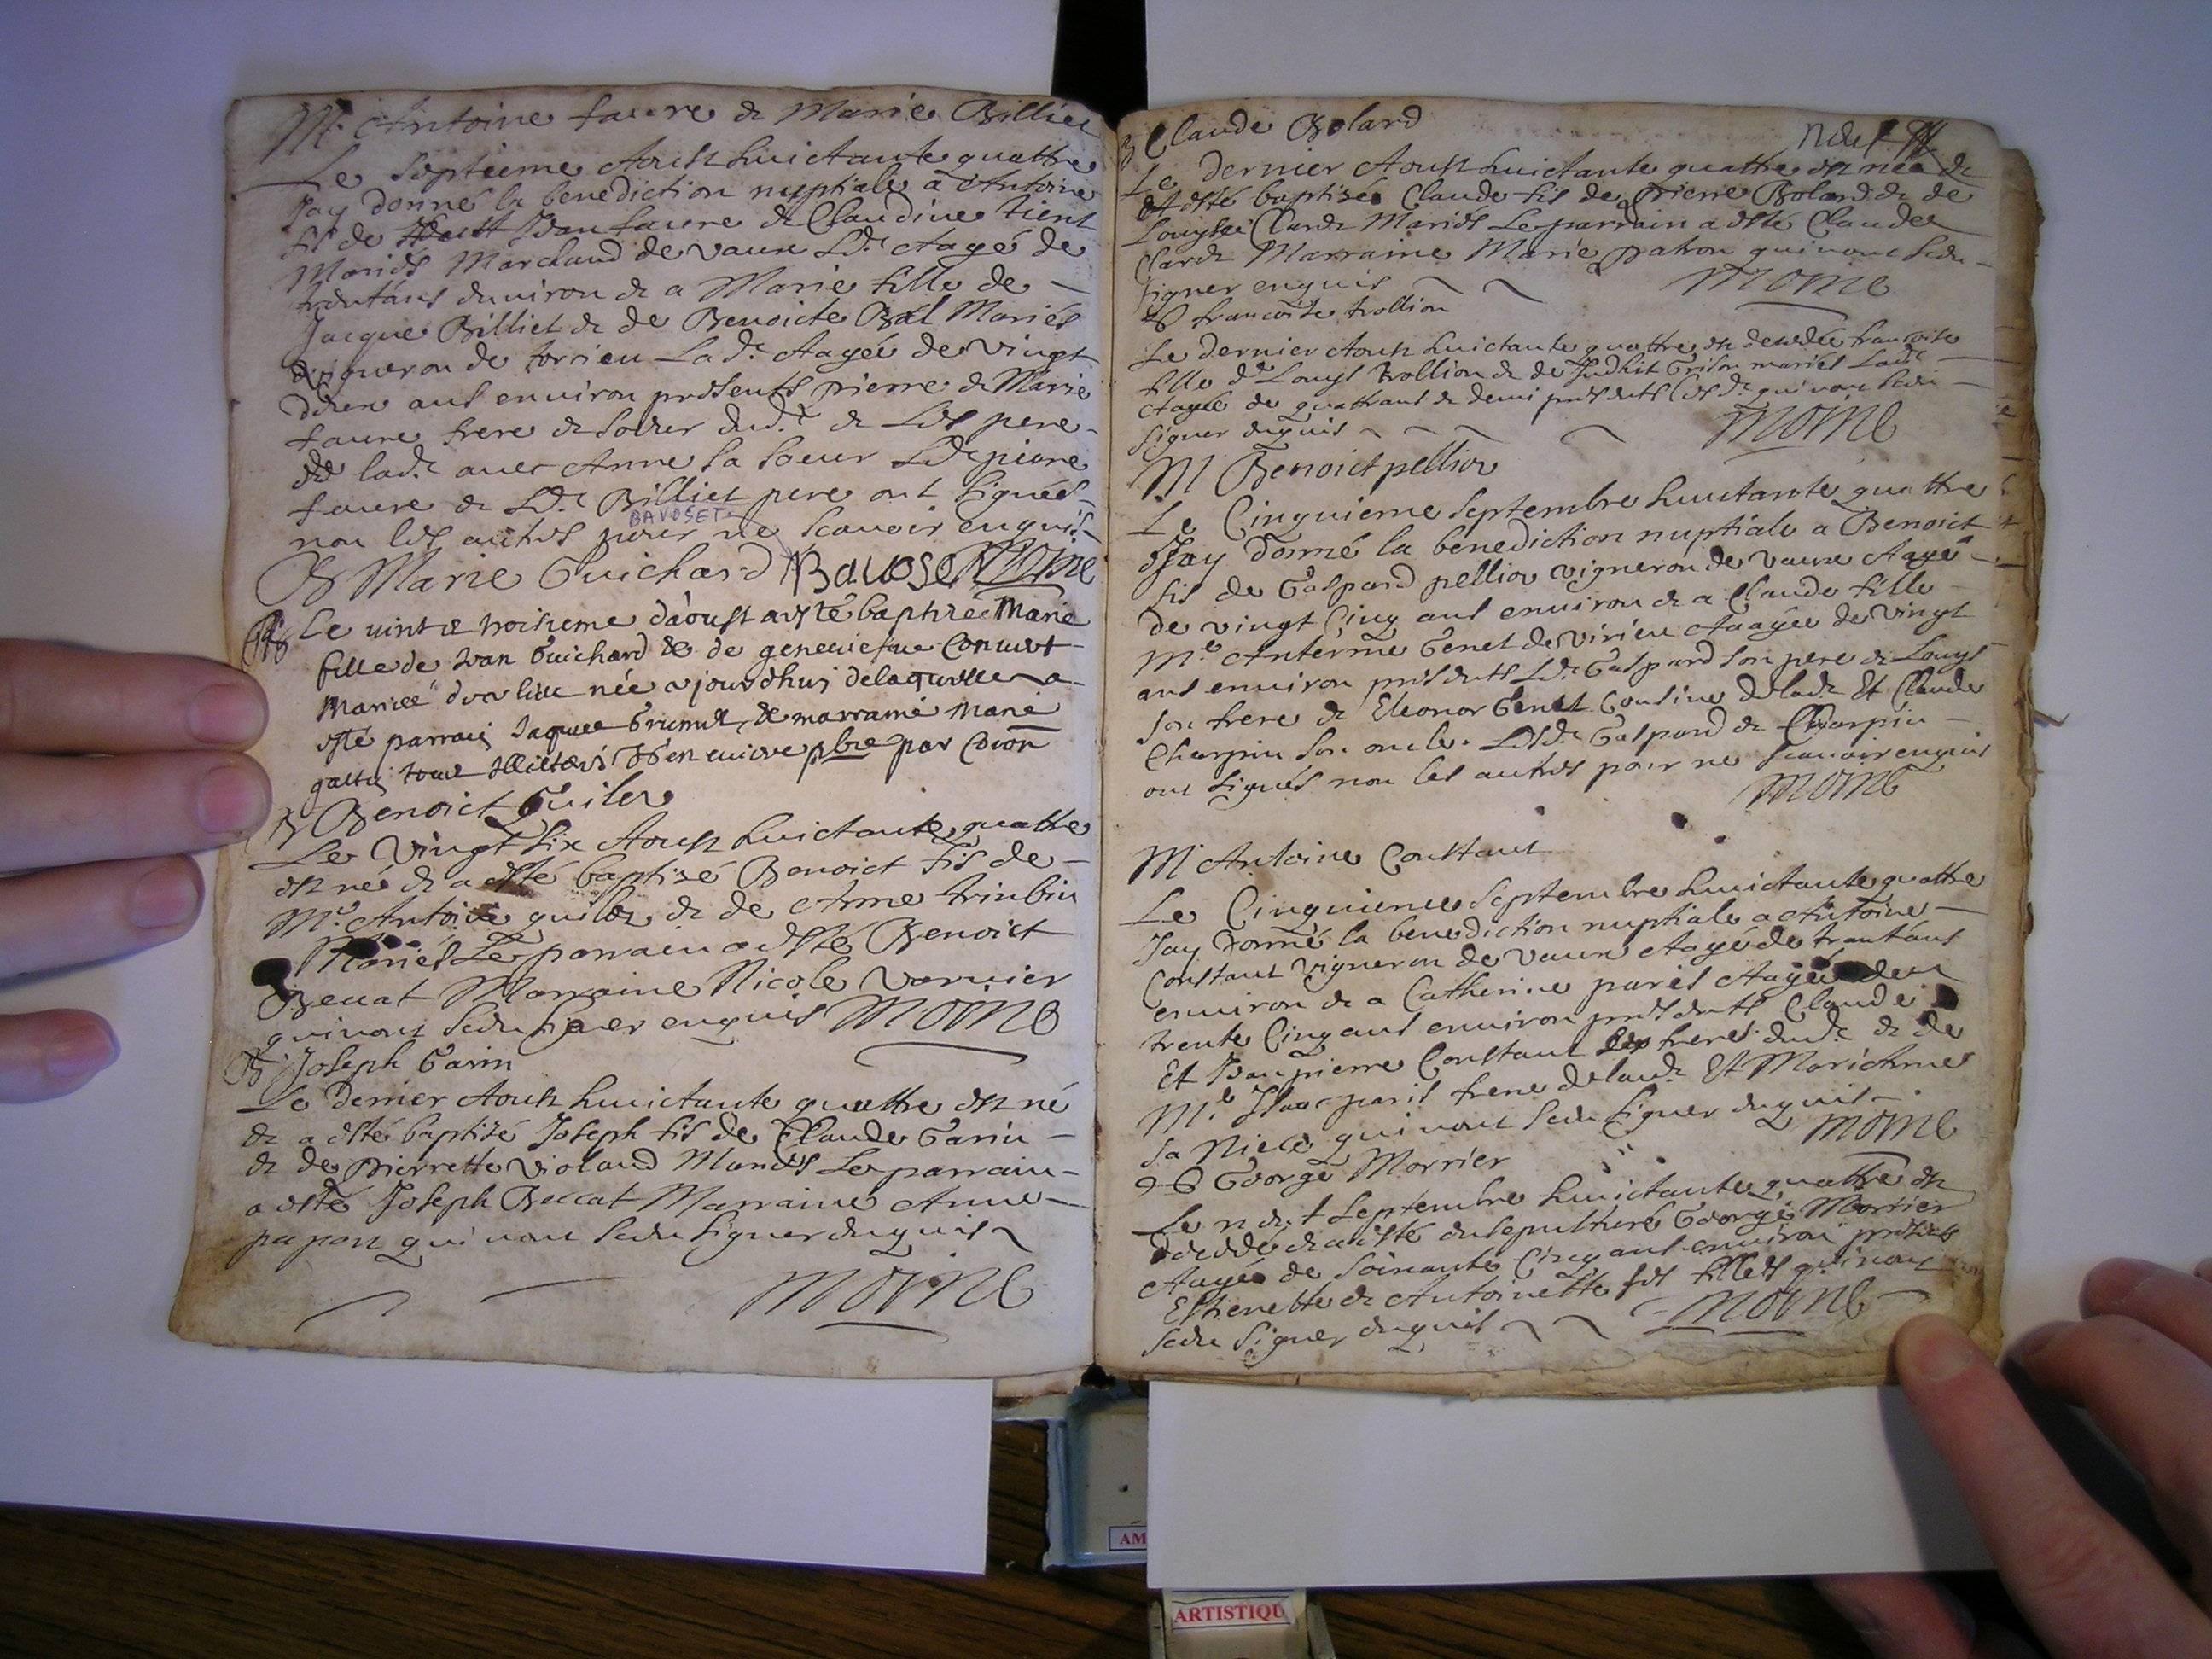 M. Antoine faure & Marie Billiet
Le Septieme Aoust huictante quattre
Jay donné la benediction nuptiale a Antoine
fis de Jean faure & Claudine tient
Mariés Marchand de vaux Ld. Aagé de
trentans environ & a Marie fille de
Jacque Billiet & de Benoicte Bal Mariés
vigneron de torcieu Lad. Aagée de vingt
deux ans environ presents pierre & Marie
faure frere & soeur dud. & Les pere
de lad. avec Anne sa soeur Ld. pierre
faure & Ld. Billiet pere ont signés
non les autres pour ne scavoir enquis
BAVOSET
B Marie Guichard Bavoset Morne
Le vint & troisieme d'aoust a esté baptisée Marie
fille de Jean Guichard & de geneviefve Convert
Mariée née ajourdhuj de laquelle a
esté parrain Jaques & marraine Marie
B Benoict Guiler
Le vingt six Aoust huictante quattre
est né & a esté baptisé Benoict fis de
M.e Antoine guiler & de Anne trinbin
Mariés Le parrain a esté Benoict
Beccat Marraine Nicole varnier
qui nont sceu signer enquis Morne
B Joseph Garin
Le dernier Aoust huictante quattre est né
& a esté baptisé Joseph fis de Claude Garin
& de pierrette violand Mariés Le parrain
a esté Joseph Beccat Marraine Anne
papon qui nont sceu signer enquis
Morne
B Claude Bolard
Le dernier Aoust huictante quattre est née &
et esté baptisée Claude fis de pierre Bolard & de
Louyse Clard Mariés Le parrain a esté Claude
Clard Marraine Marie patron qui nont sceu
signer enquis Morne
francoise trollion
Le dernier Aoust huictante quattre est decedée francoise
fille de Louys trollion & de Judhit Grison mariés Lad.
Aagée de quattrans & demi presents Lesd. qui nont sceu
signer enquis Morne
M Benoict pellion
Le Cinquieme Septembre huictante quattre
Jay donné la benediction nuptiale a Benoict
fis de Gaspard pellion vigneron de vaux Aagé
de vingt Cinq ans environ & a Claude fille
M.e Anterme Genet de virieu Aaagée de vingt
ans environ presents Ld. Gaspard son pere & Louys
son frere & Eleonor Genet Cousine de lad. Et Claude
Charpin son oncle. Lesd. Gaspard & Charpin
ont signés non les autres pour ne scavoir enquis
Morne
M Antoine Constant
Le Cinquieme Septembre huictante quattre
Jay donné la benediction nuptiale a Antoine
Constant vigneron de vaux Aagé de trantans
environ & a Catherine paris Aagée de
trente Cinq ans environ presents Claude
Et Jean pierre Constant freres dud. & de
M.e Isaac paris frere de lad. Et Marie Anne
sa Niece qui nont sceu signer enquis
Morne
George Morrier
Le neuf Septembre huictante quattre est
decedé & a esté ensepulturé George Morrier
Aagé de soixante Cinq ans environ presents
Estienette & Antoinette ses filles qui nont
sceu signer enquis Morne
AM
ARTISTIQU